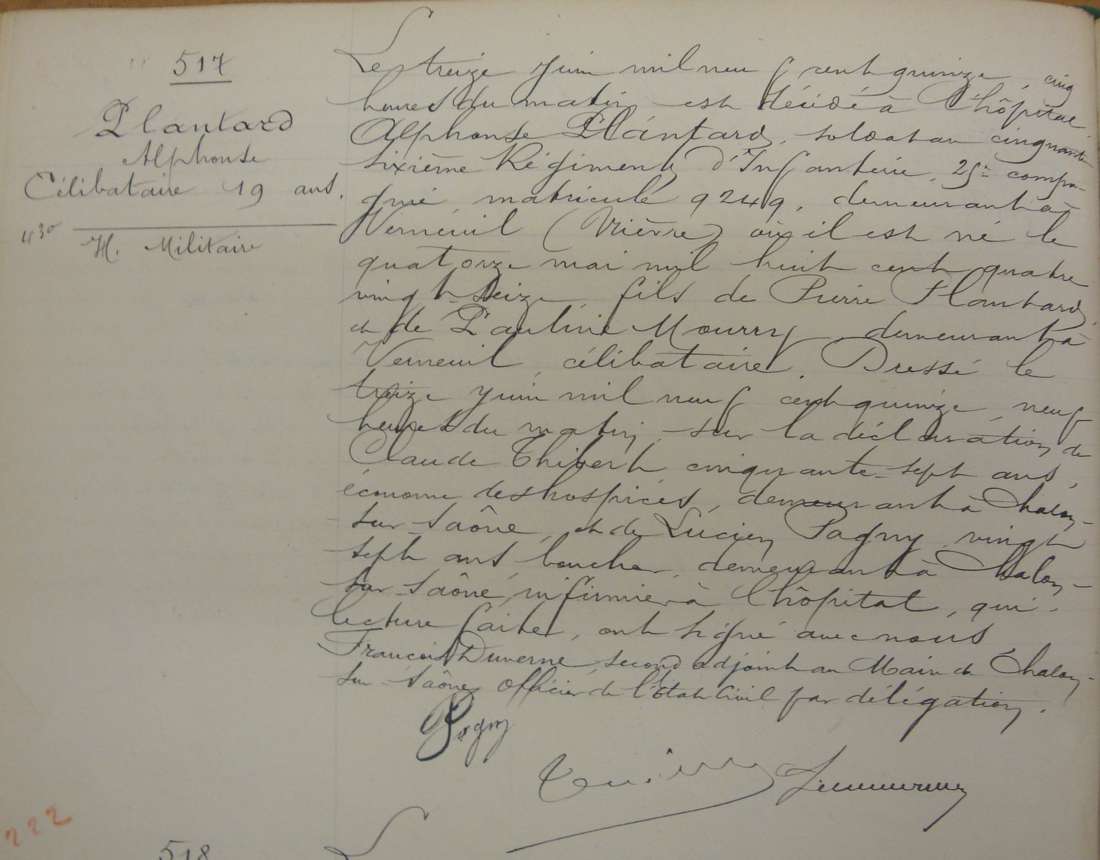 517
Plantard
Alphonse
Célibataire 19 ans.
430
H. Militaire
Le treize juin mil neuf cent quinze, cinq
heures du matin est décédé à l'hôpital
Alphonse Plantard, soldat au cinquante
sixième Régiment d'Infanterie, 25e compa-
gnie matricule 9249, demeurant à
Verneuil (Nièvre) où il est né le
quatorze mai mil huit cent quatre
vingt-seize, fils de Pierre Plantard
et de Pauline Mourry, demeurant à
Verneuil, célibataire. Dressé le
treize juin mil neuf cent quinze, neuf
heures du matin, sur la déclaration de
Claude Thivert cinquante-sept ans,
économe des hospices, demeurant à Chalon-
sur-Saône, et de Lucien Pagny, vingt
sept ans boucher, demeurant à Chalon-
sur-Saône, infirmier à l'hôpital, qui,
lecture faite, ont signé avec nous
François Duverne, second adjoint au Maire de Chalon-
sur-Saône, officier de l'Etat Civil par délégation.
Pagny
222
518
L